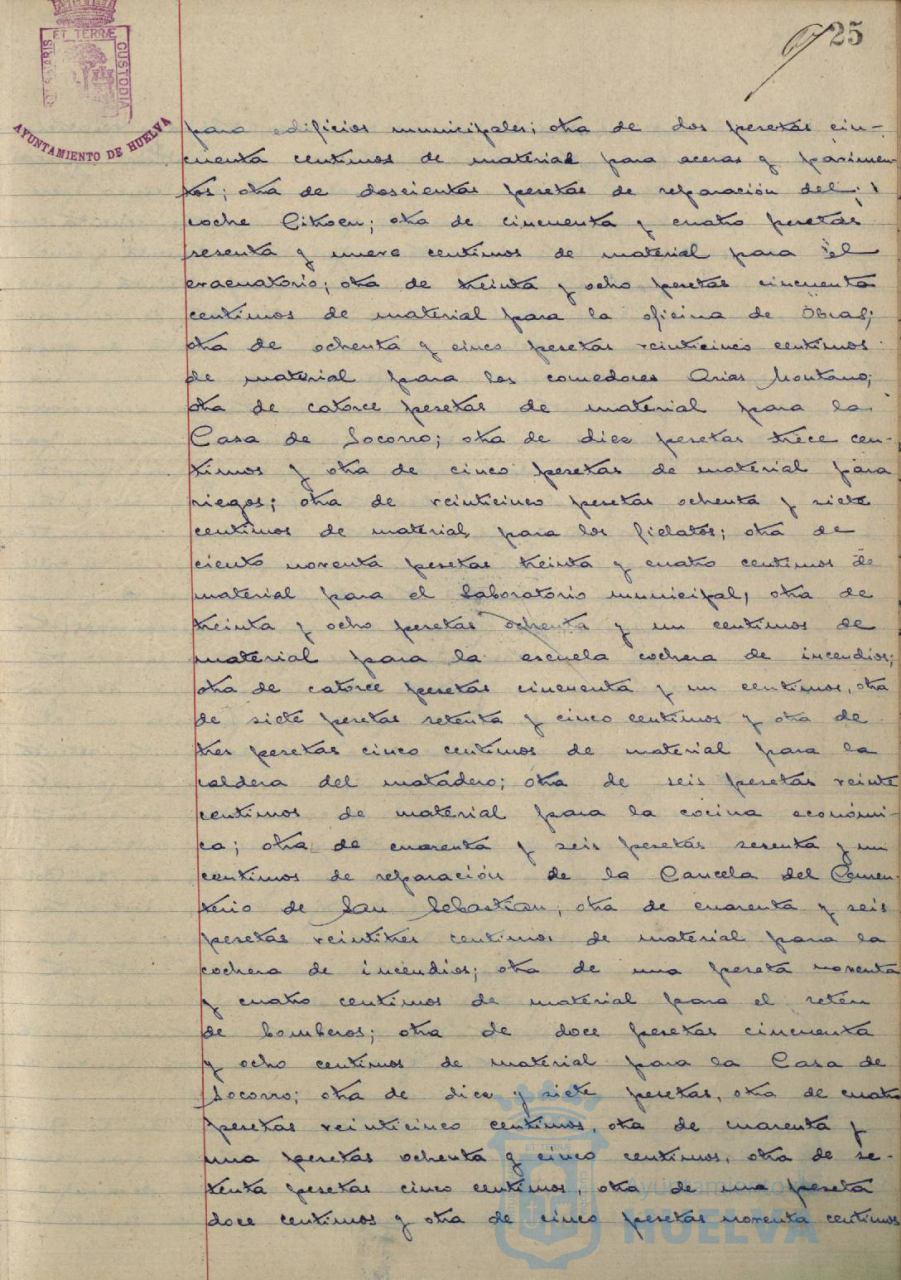 25
ET TERRÆ
CUSTODIA
AYUNTAMIENTO DE HUELVA
para edificios municipales; otra de dos pesetas cin-
cuenta centimos de material para aceras y pavimen-
tos; otra de doscientas pesetas de reparación del
coche Citroen; otra de cincuenta y cuatro pesetas
sesenta y nueve centimos de material para el
evacuatorio; otra de treinta y ocho pesetas cincuenta
centimos de material para la oficina de Obras;
otra de ochenta y cinco pesetas veinticinco centimos
de material para los comedores Arias Montano;
otra de catorce pesetas de material para la
Casa de Socorro; otra de diez pesetas trece cen-
timos y otra de cinco pesetas de material para
riegos; otra de veinticinco pesetas ochenta y siete
centimos de material para los fielatos; otra de
ciento noventa pesetas treinta y cuatro centimos de
material para el Laboratorio municipal, otra de
treinta y ocho pesetas ochenta y un centimos de
material para la escuela cochera de incendios;
otra de catorce pesetas cincuenta y un centimos, otra
de siete pesetas setenta y cinco centimos y otra de
tres pesetas cinco centimos de material para la
caldera del matadero; otra de seis pesetas veinte
centimos de material para la cocina económi-
ca; otra de cuarenta y seis pesetas sesenta y un
centimos de reparación de la Cancela del Cemen-
terio de San Sebastian, otra de cuarenta y seis
pesetas veintitres centimos de material para la
cochera de incendios; otra de una peseta noventa
y cuatro centimos de material para el retén
de bomberos; otra de doce pesetas cincuenta
y ocho centimos de material para la Casa de
Socorro; otra de diez y siete pesetas, otra de cuatro
pesetas veinticinco centimos, otra de cuarenta y
una pesetas ochenta y cinco centimos, otra de se-
tenta pesetas cinco centimos, otra de una peseta
doce centimos y otra de cinco pesetas noventa centimos
Ayuntamiento de
HUELVA